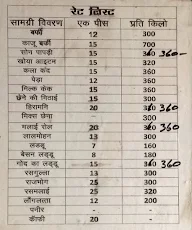 रेट लिस्ट
सामग्री विवरण एक पीस प्रति किलो
बर्फी 12 300
काजू बर्फी 15 700
सोन पापड़ी 15 360-
खोया आइटम 15 320
कला कंद 15 360
पेड़ा 12 360
मिल्क केक 15 360
छेने की मिठाई 15 300
हिरामनि 20 360-
मिक्स छेना - 300
मलाई रोल 20 360-
लालमोहन 13 300
लडडू 7 160
बेसन लडडू 8 180
गोंद का लडडू 15 360
रसगुल्ला 13 300
राजभोग 25 300
रसमलाई 25 320
लौंगलता 12 200
पनीर -
कॉफी 20 -